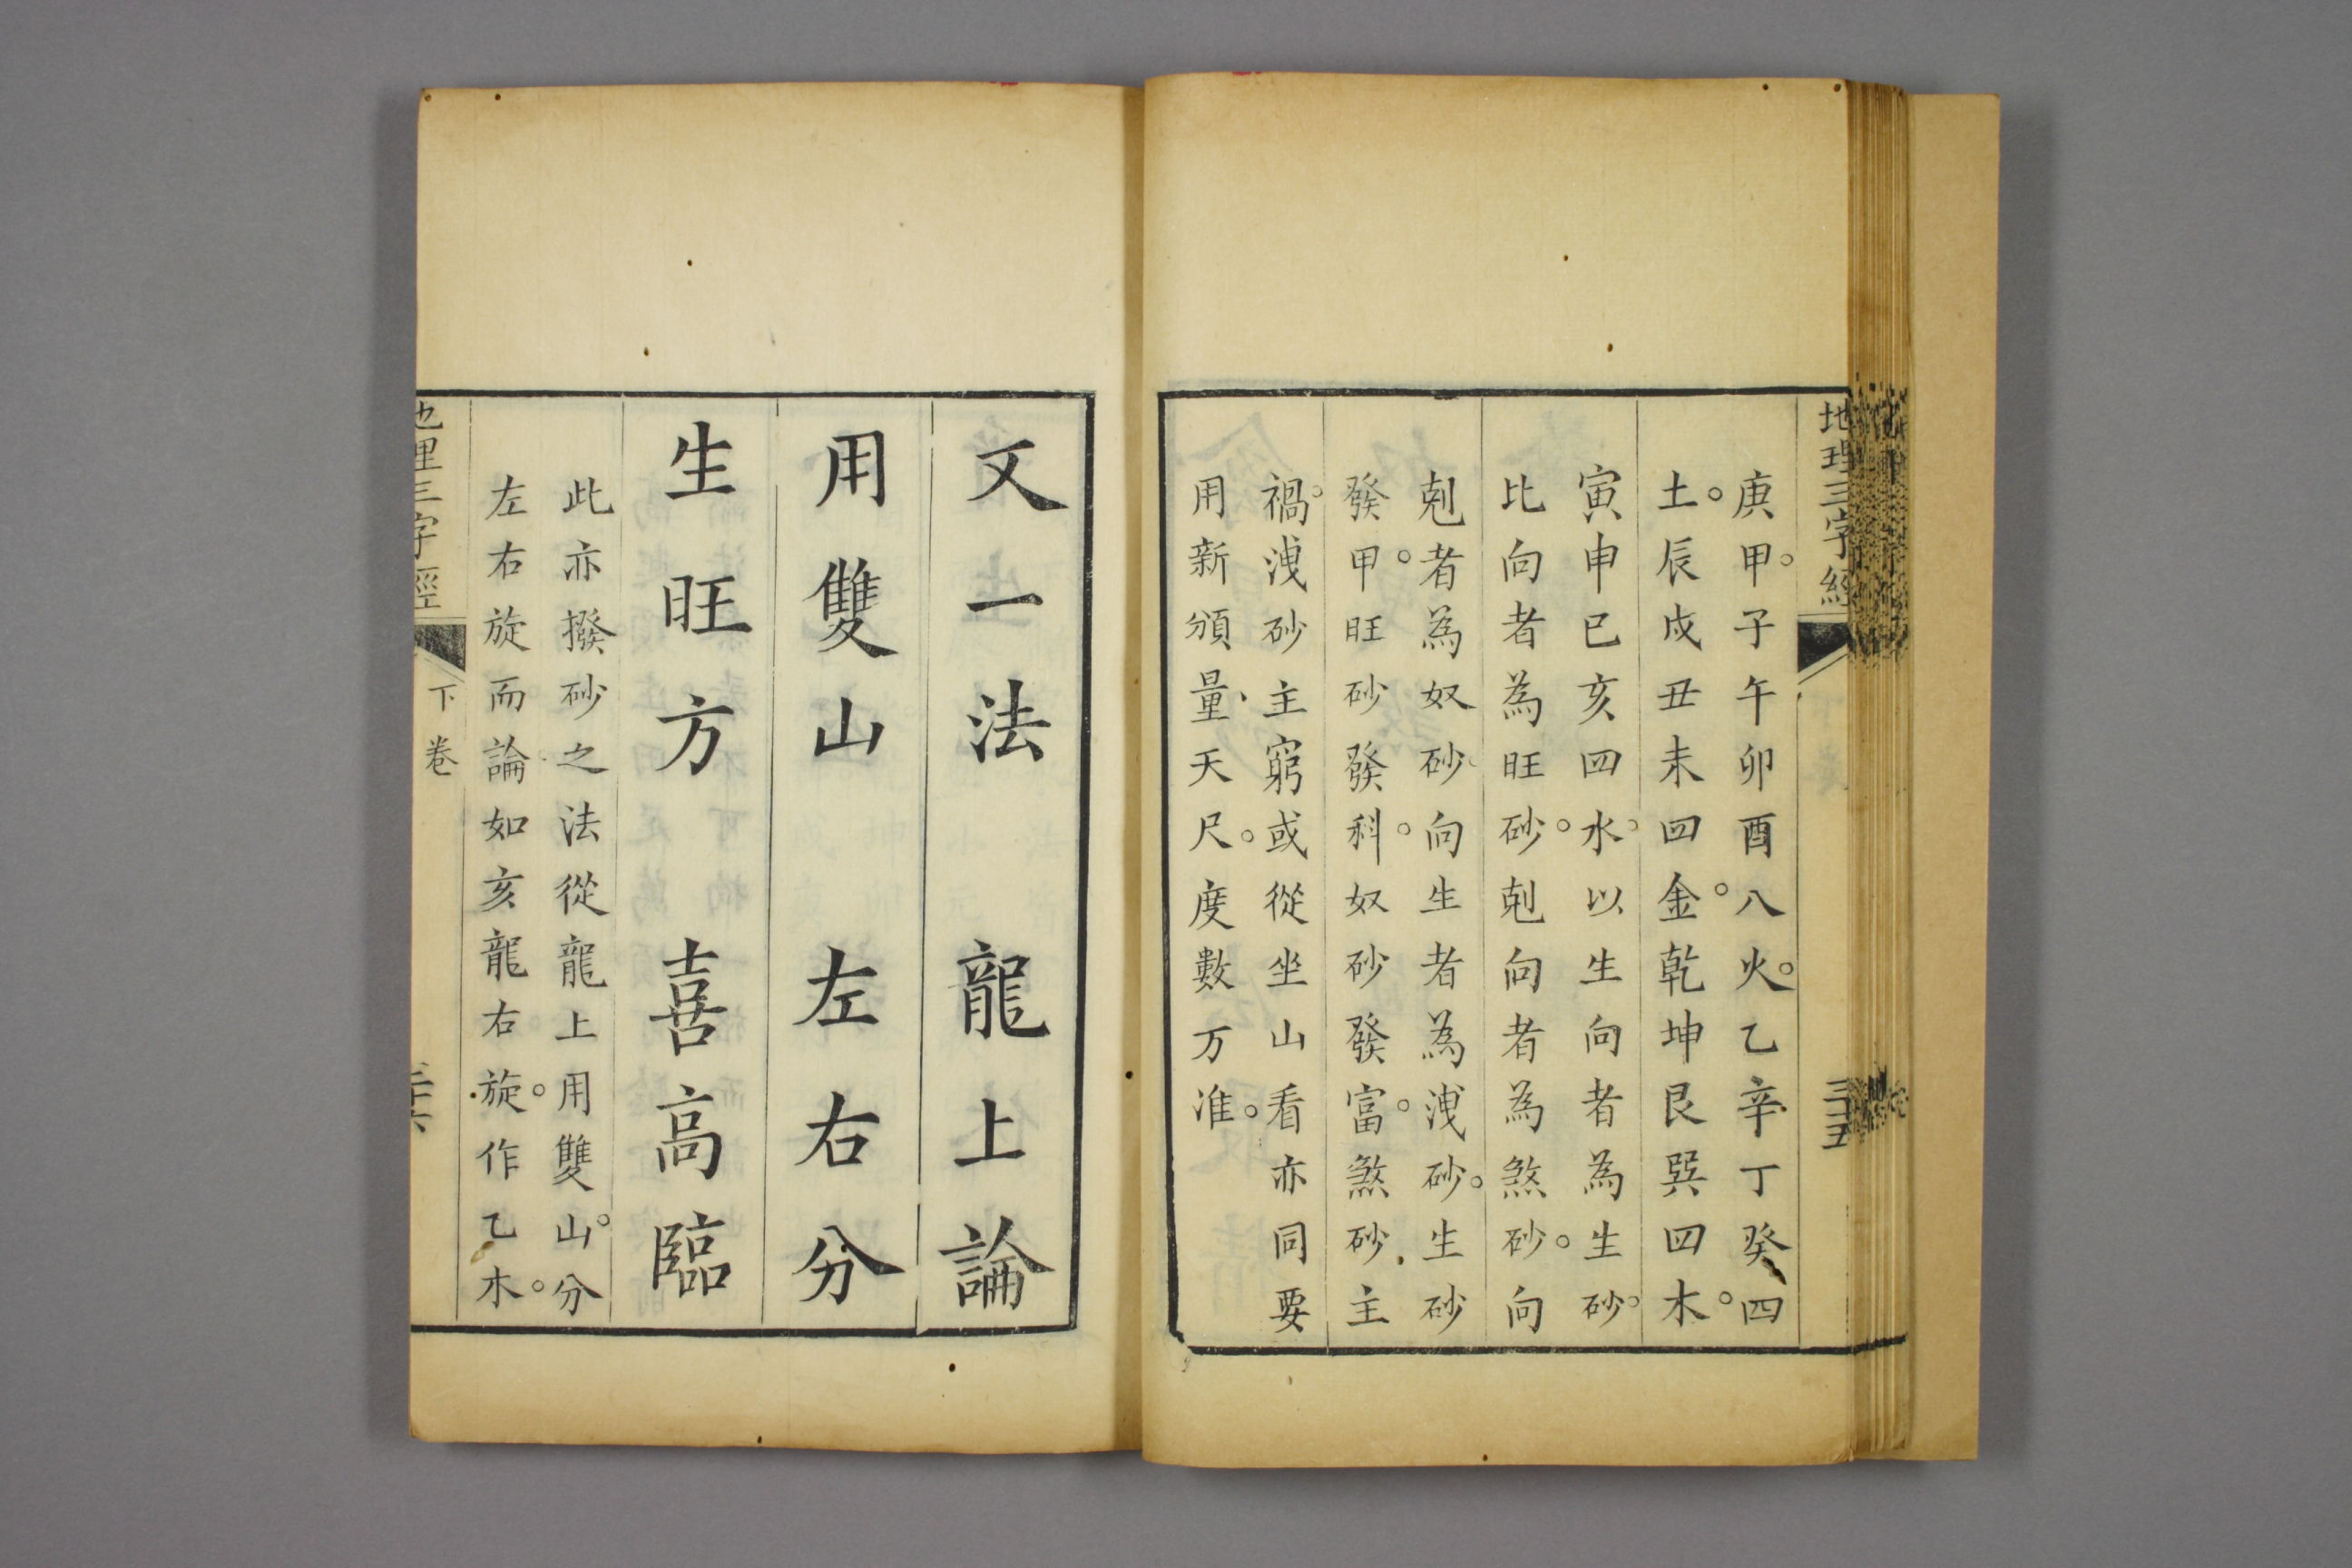 地理三字經
三十五
庚甲。子午卯酉八火。乙辛丁癸四
土。辰戌丑未四金。乾坤艮巽四木。
寅申巳亥四水。以生向者為生砂。
比向者為旺砂。剋向者為煞砂。向
剋者為奴砂。向生者為洩砂。生砂
發甲。旺砂發科。奴砂發富。煞砂主
禍。洩砂主窮或從坐山看亦同要
用新頒量天尺。度數万准。
又一法　龍上論
用雙山　左右分
生旺方　喜高臨
此亦撥砂之法從龍上用雙山。分
左右旋而論如亥龍右旋。作乙木。
地理三字經
下卷